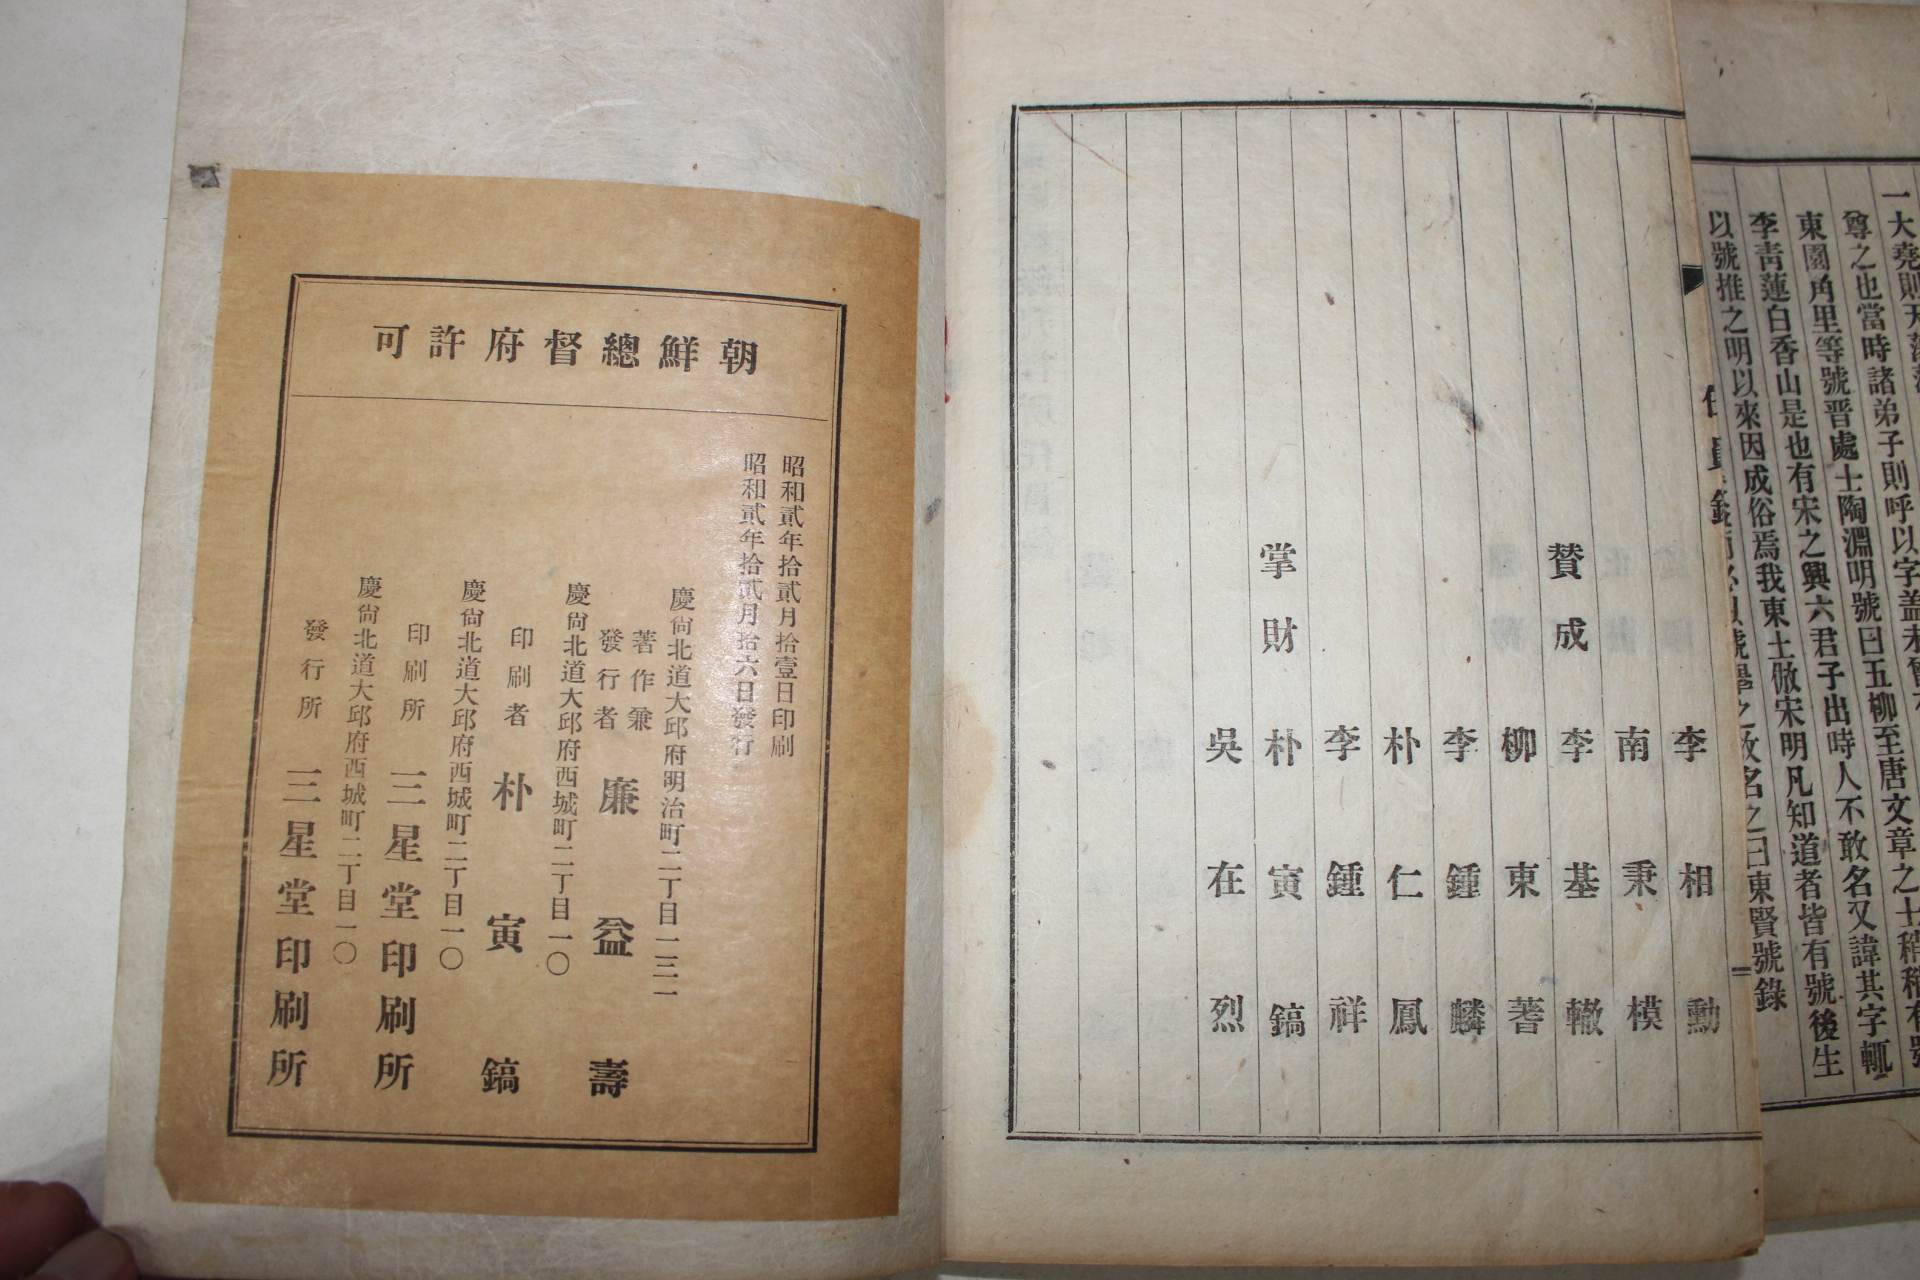 一大堯則天
尊之也當時諸弟子則呼以字盖未
東園甪里等號晋處士陶淵明號曰五柳至唐文章之士稍稍有號
李青蓮白香山是也有宋之興六君子出時人不敢名又諱其字輒
以號推之明以來因成俗焉我東土倣宋明凡知道者皆有號後生
東賢號錄
李相勳
南秉模
賛成 李基轍
柳東蓍
李鍾麟
朴仁鳳
李鍾祥
掌財 朴寅鎬
吳在烈
朝鮮總督府許可
昭和貳年拾貳月拾壹日印刷
昭和貳年拾貳月拾六日發行
慶尙北道大邱府明治町二丁目一三一
著作兼
發行者 廉益壽
慶尙北道大邱府西城町二丁目一〇
印刷者 朴寅鎬
慶尙北道大邱府西城町二丁目一〇
印刷所 三星堂印刷所
慶尙北道大邱府西城町二丁目一〇
發行所 三星堂印刷所